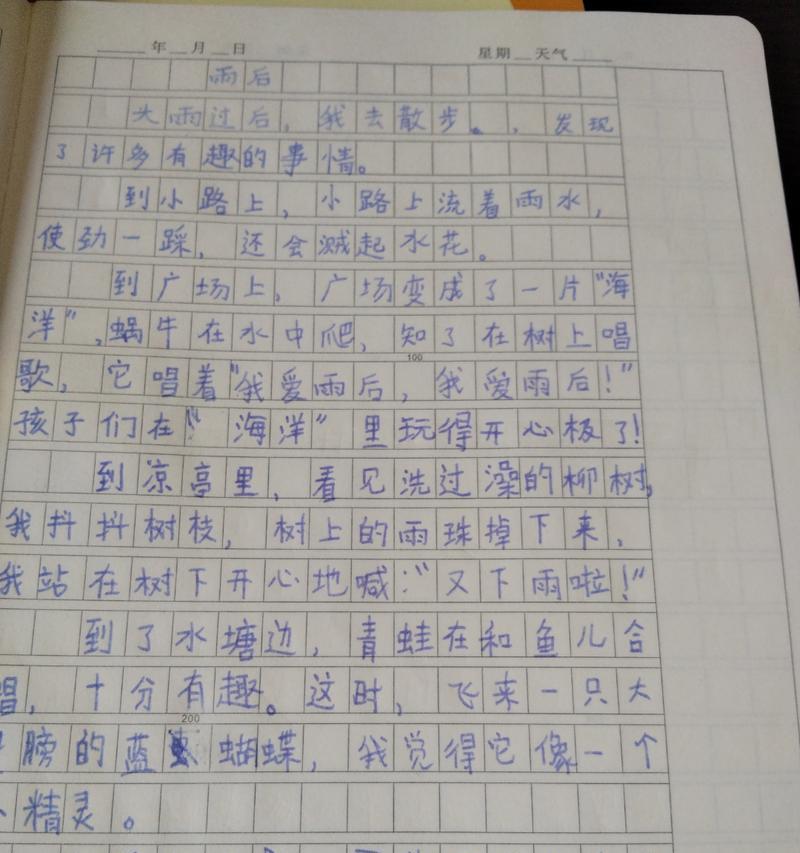 年 月 日 星期 天气
雨后
大雨过后，我去散步。，发现
了许多有趣的事情。
到小路上，小路上流着雨水，
使劲一踩，还会溅起水花。
到广场上，广场变成了一片“海
洋”，蜗牛在水中爬，知了在树上唱
100
歌，它唱着“我爱雨后，我爱雨后！”
孩子们在“海洋”里玩得开心极了！
到凉亭里，看见洗过澡的柳树，
我抖抖树枝，树上的雨珠掉下来，
我站在树下开心地喊：“又下雨啦！”
到了水塘边，青蛙在和鱼儿合
唱，十分有趣。这时，飞来一只大
200
膀的蓝蝴蝶，我觉得它像一个
精灵。